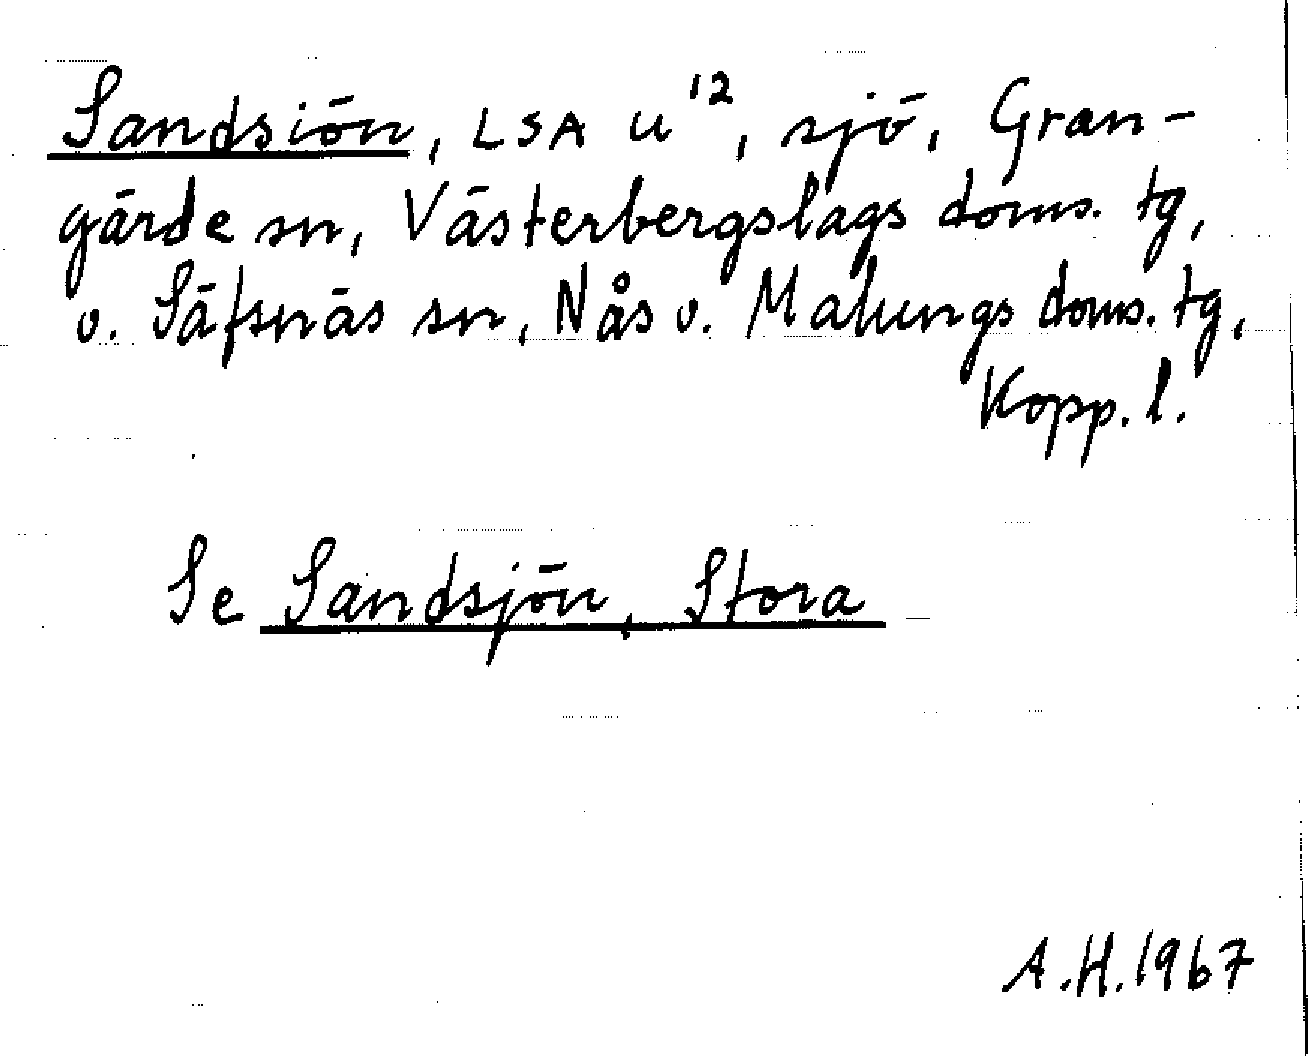 Sandsiön, LSA U¹², sjö, Gran-
gärde sn, Västerbergslags doms. tg,
o. Säfsnäs sn, Nås o. Malungs doms. tg,
Kopp. l.
Se Sandsjön, Stora
A.H. 1967